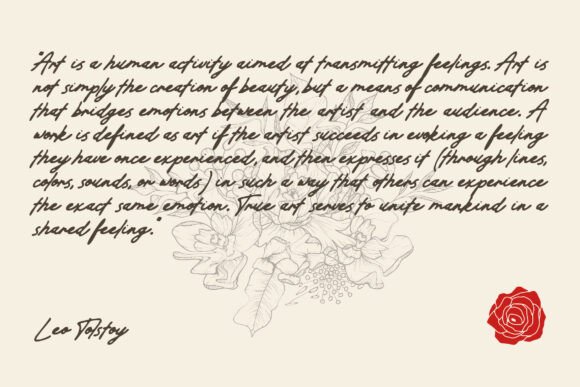 "Art is a human activity aimed at transmitting feelings. Art is
not simply the creation of beauty, but a means of communication
that bridges emotions between the artist and the audience. A
work is defined as art if the artist succeeds in evoking a feeling
they have once experienced, and then expresses it (through lines,
colors, sounds, or words) in such a way that others can experience
the exact same emotion. True art serves to unite mankind in a
shared feeling."
Leo Tolstoy